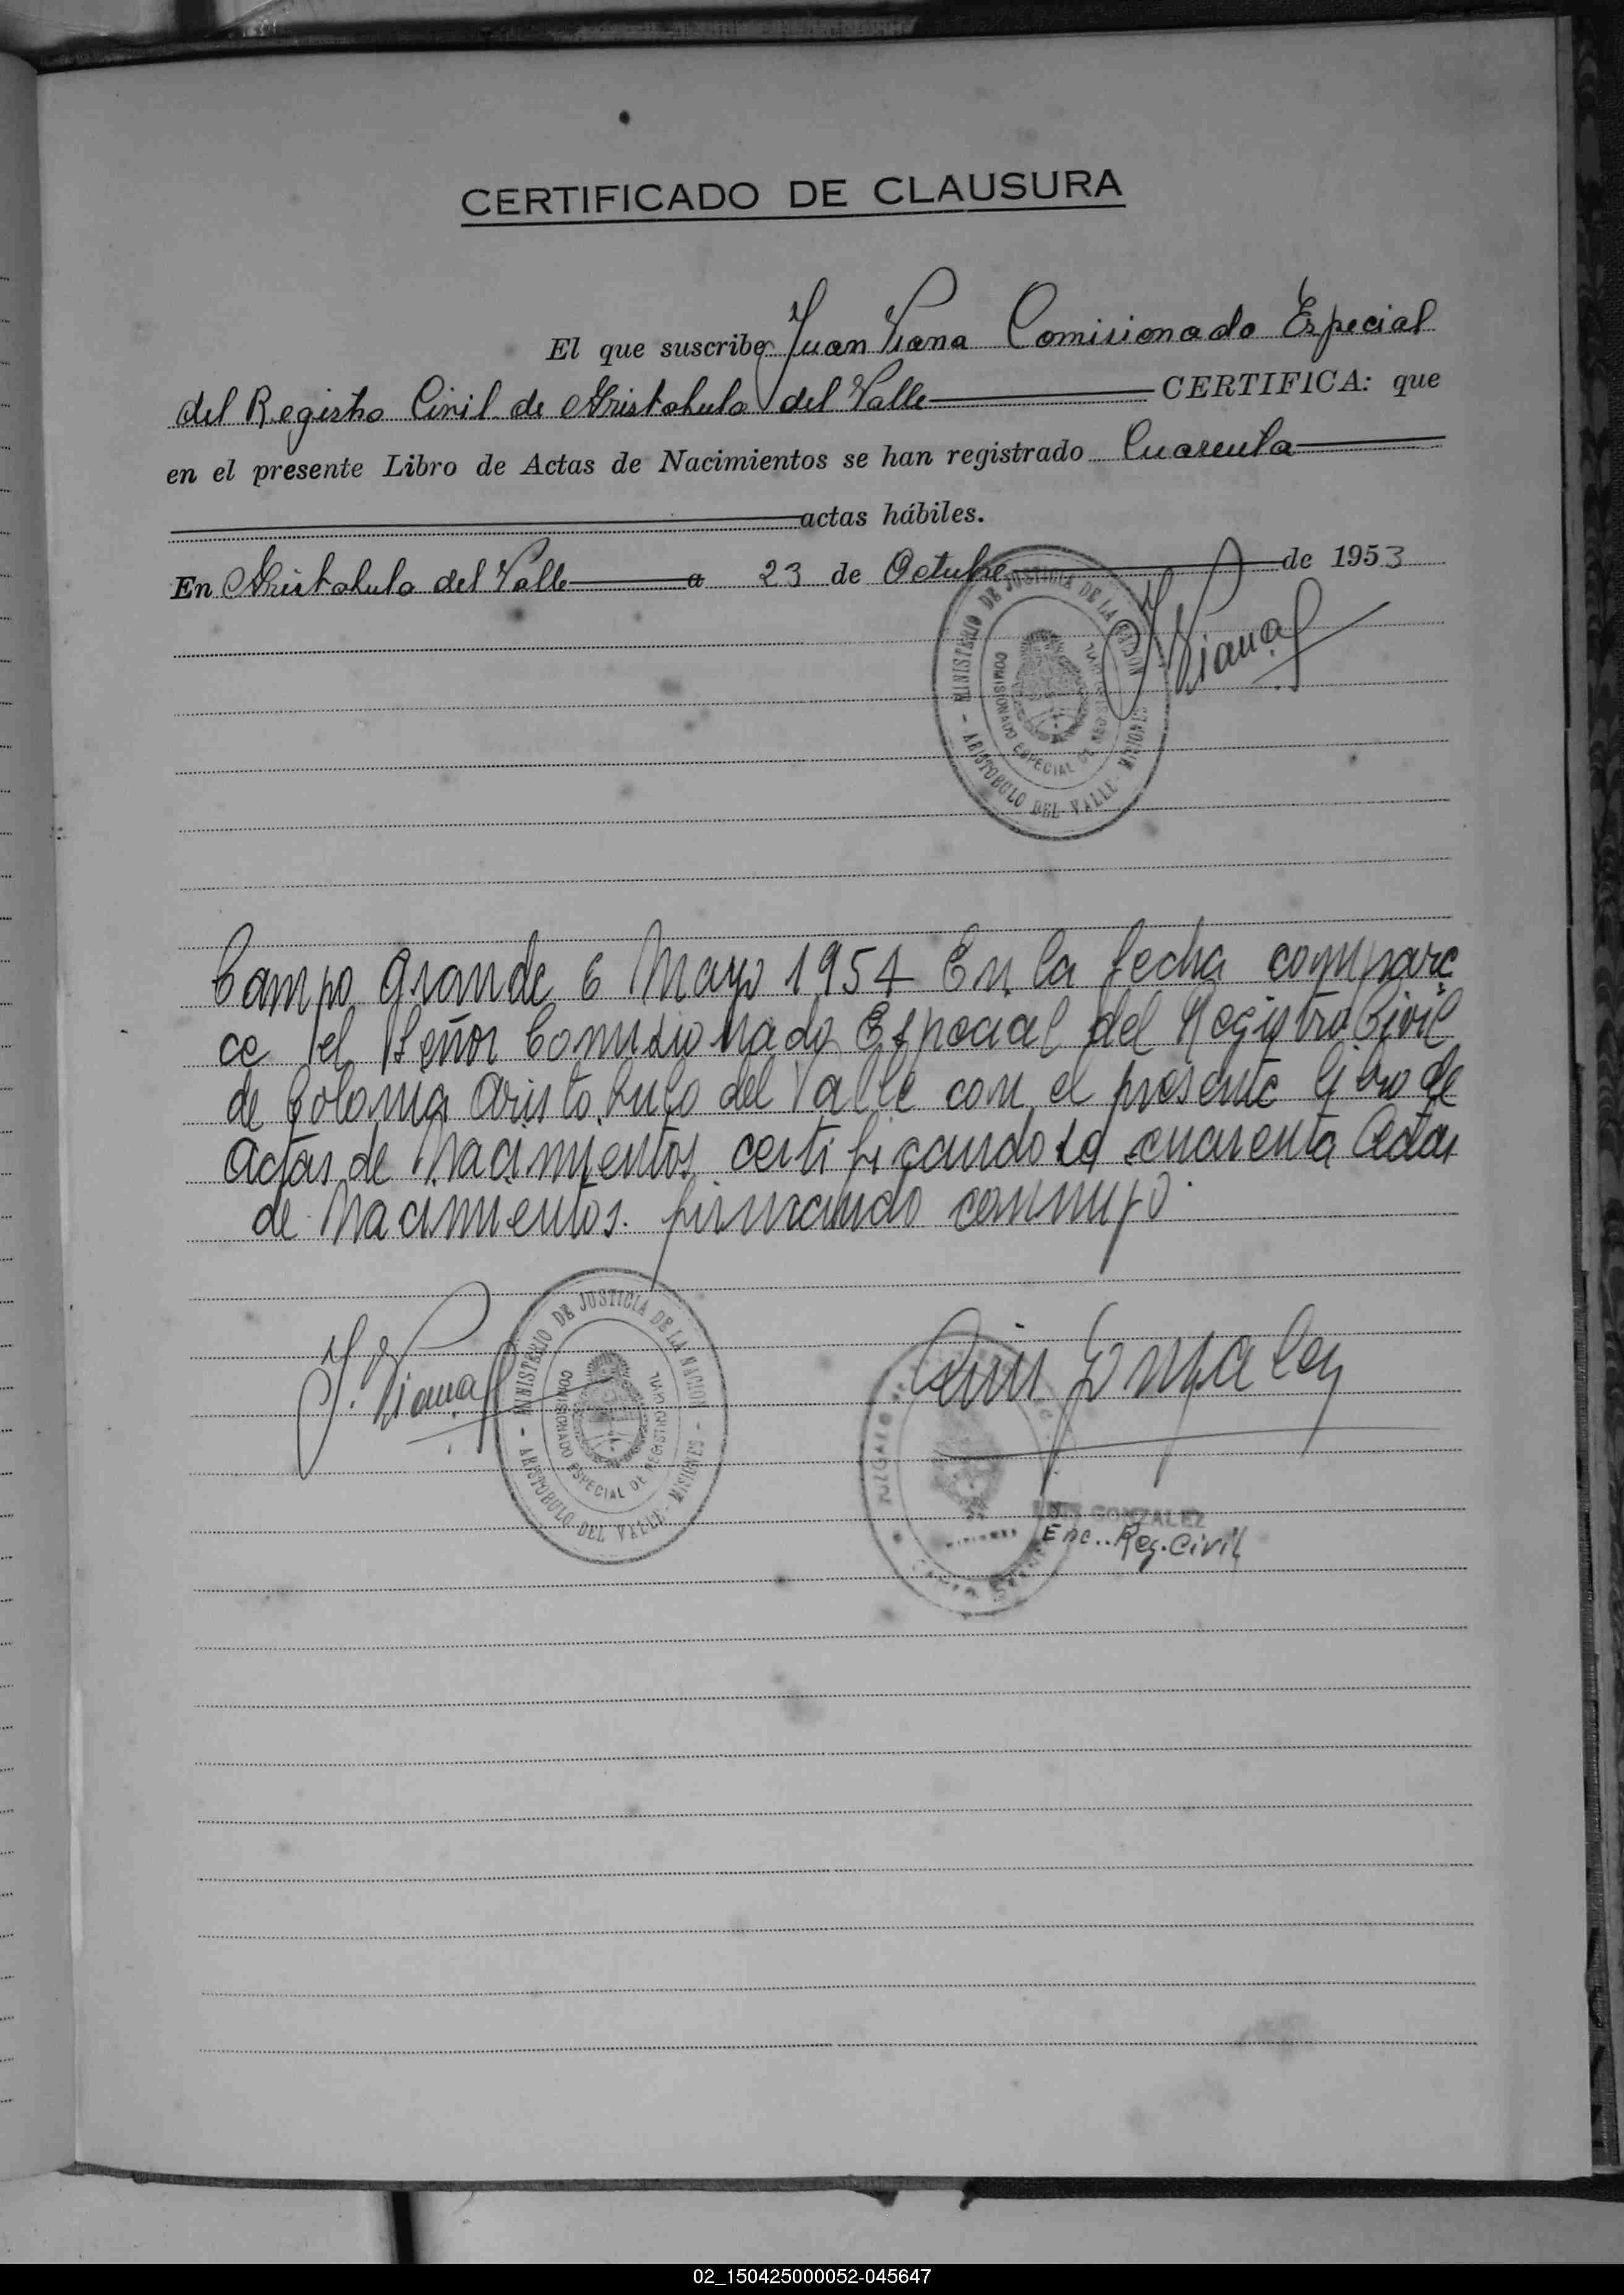 CERTIFICADO DE CLAUSURA
El que suscribe Juan Piana Comisionado Especial
del Registro Civil de Aristobulo del Valle CERTIFICA: que
en el presente Libro de Actas de Nacimientos se han registrado Cuarenta
actas hábiles.
En Aristobulo del Valle a 23 de Octubre de 1953
J Piana
MINISTERIO DE JUSTICIA DE LA NACION
COMISIONADO ESPECIAL DE REGISTRO CIVIL
- ARISTOBULO DEL VALLE - MISIONES
Campo Grande 6 Mayo 1954 En la fecha compare
ce el Señor Comisionado Especial del Registro Civil
de Colonia Aristobulo del Valle con el presente libro de
Actas de Nacimientos certificandose cuarenta Actas
de Nacimientos. firmando conmigo.
J. Piana
MINISTERIO DE JUSTICIA DE LA NACION
COMISIONADO ESPECIAL DE REGISTRO CIVIL
- ARISTOBULO DEL VALLE - MISIONES -
Luis Gonzalez
JUZGADO
LUIS GONZALEZ
Enc. Reg. Civil
02_150425000052-045647